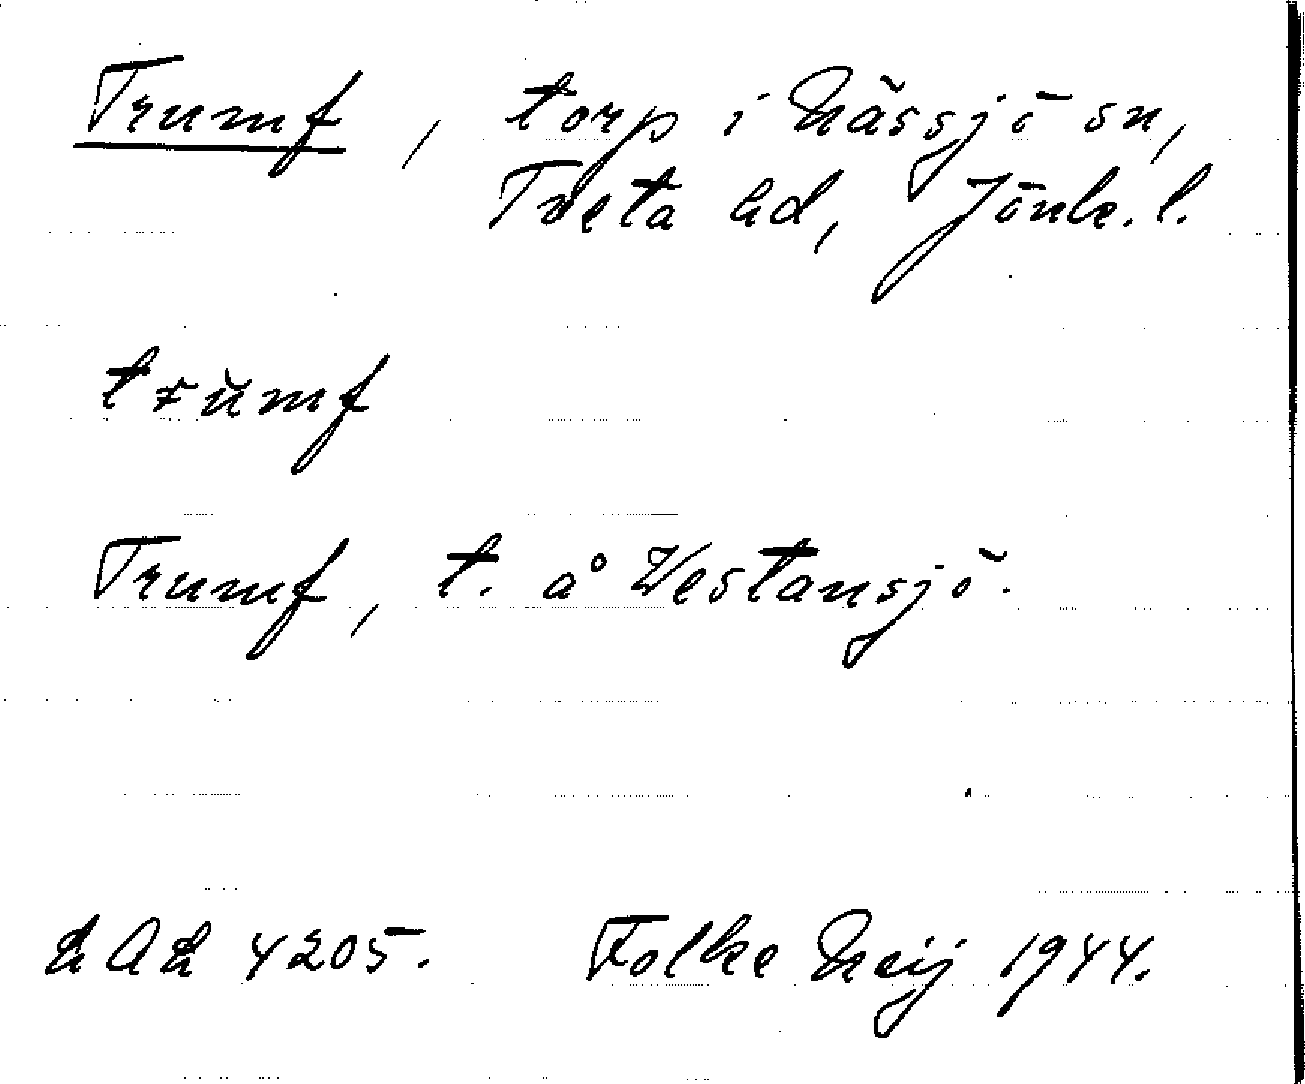 Trumf, torp i Nässjö sn,
Tveta hd, Jönk. l.
trŭmf
Trumf, t. å Westansjö.
4205. Folke Neij 1944.